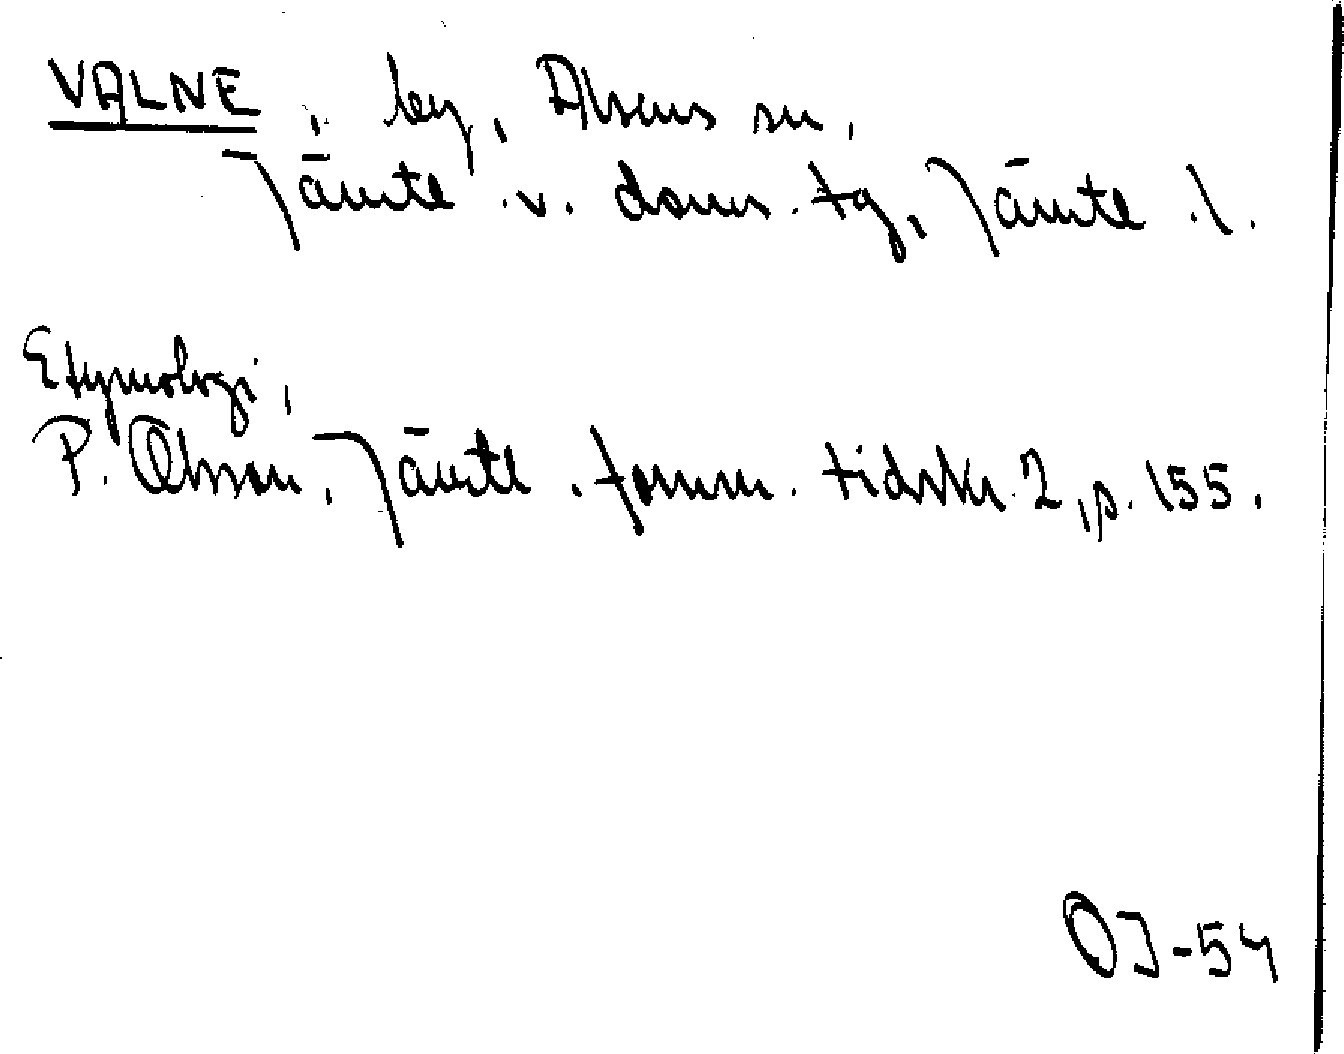 VALNE, by, Alsens sn,
Jämtl. v. doms. tg, Jämtl. l.
Etymologi,
P. Olsson, Jämtl. fornm. tidskr. 2, p. 155.
OJ-54